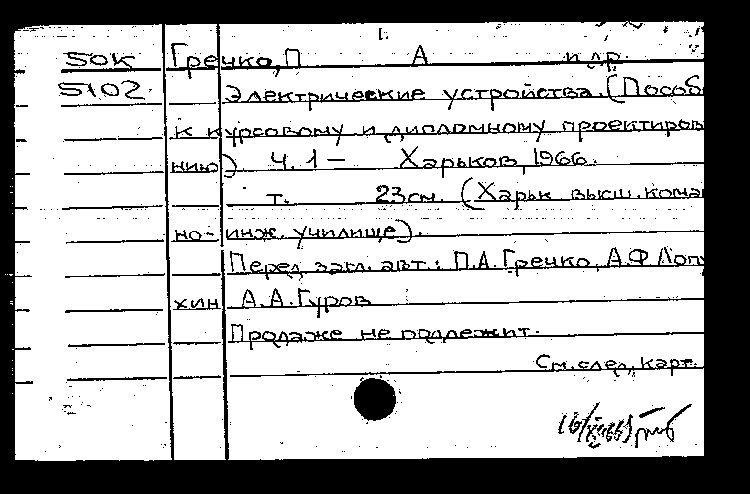 50к Гречко, П А и др.
5102 Электрические устройства. (Пособ
к курсовому и дипломному проектиров
нию) Ч. 1 — Харьков, 1966.
т. 23 см. (Харьк высш. кома
но-инж. училище).
Перед загл. авт.: П.А. Гречко, А.Ф Лопу
хин А.А. Гуров
Продаже не подлежит.
См. след. карт.